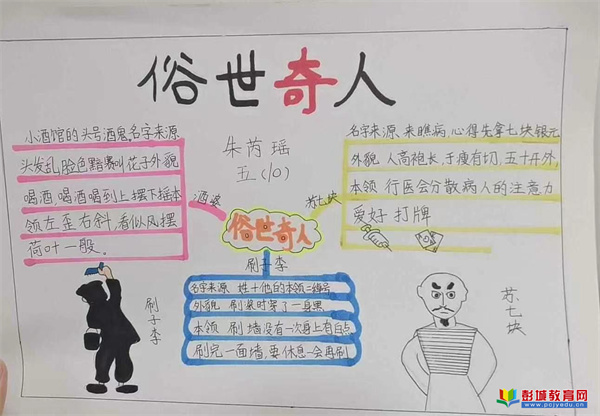 俗世奇人
小酒馆的头号酒鬼,名字来源
头发乱,脸色黯,赛叫花子外貌
喝酒 喝酒喝到上 摆下摇本
领左歪右斜,看似风摆
荷叶一般。
朱芮瑶
五(10)
名字来源 来瞧病,心得先拿七块银元
外貌 人高袍长,手瘦有切,五十开外,
本领 行医会分散病人的注意力
爱好 打牌
酒婆
苏七块
俗世奇人
刷子李
名字来源 姓+他的本领=绰号
外貌 刷浆时穿了一身黑
本领 刷墙没有一次身上有白点
刷完一面墙,要休息一会再刷
刷子李
苏七块
彭城教育网
www.pcjyedu.com